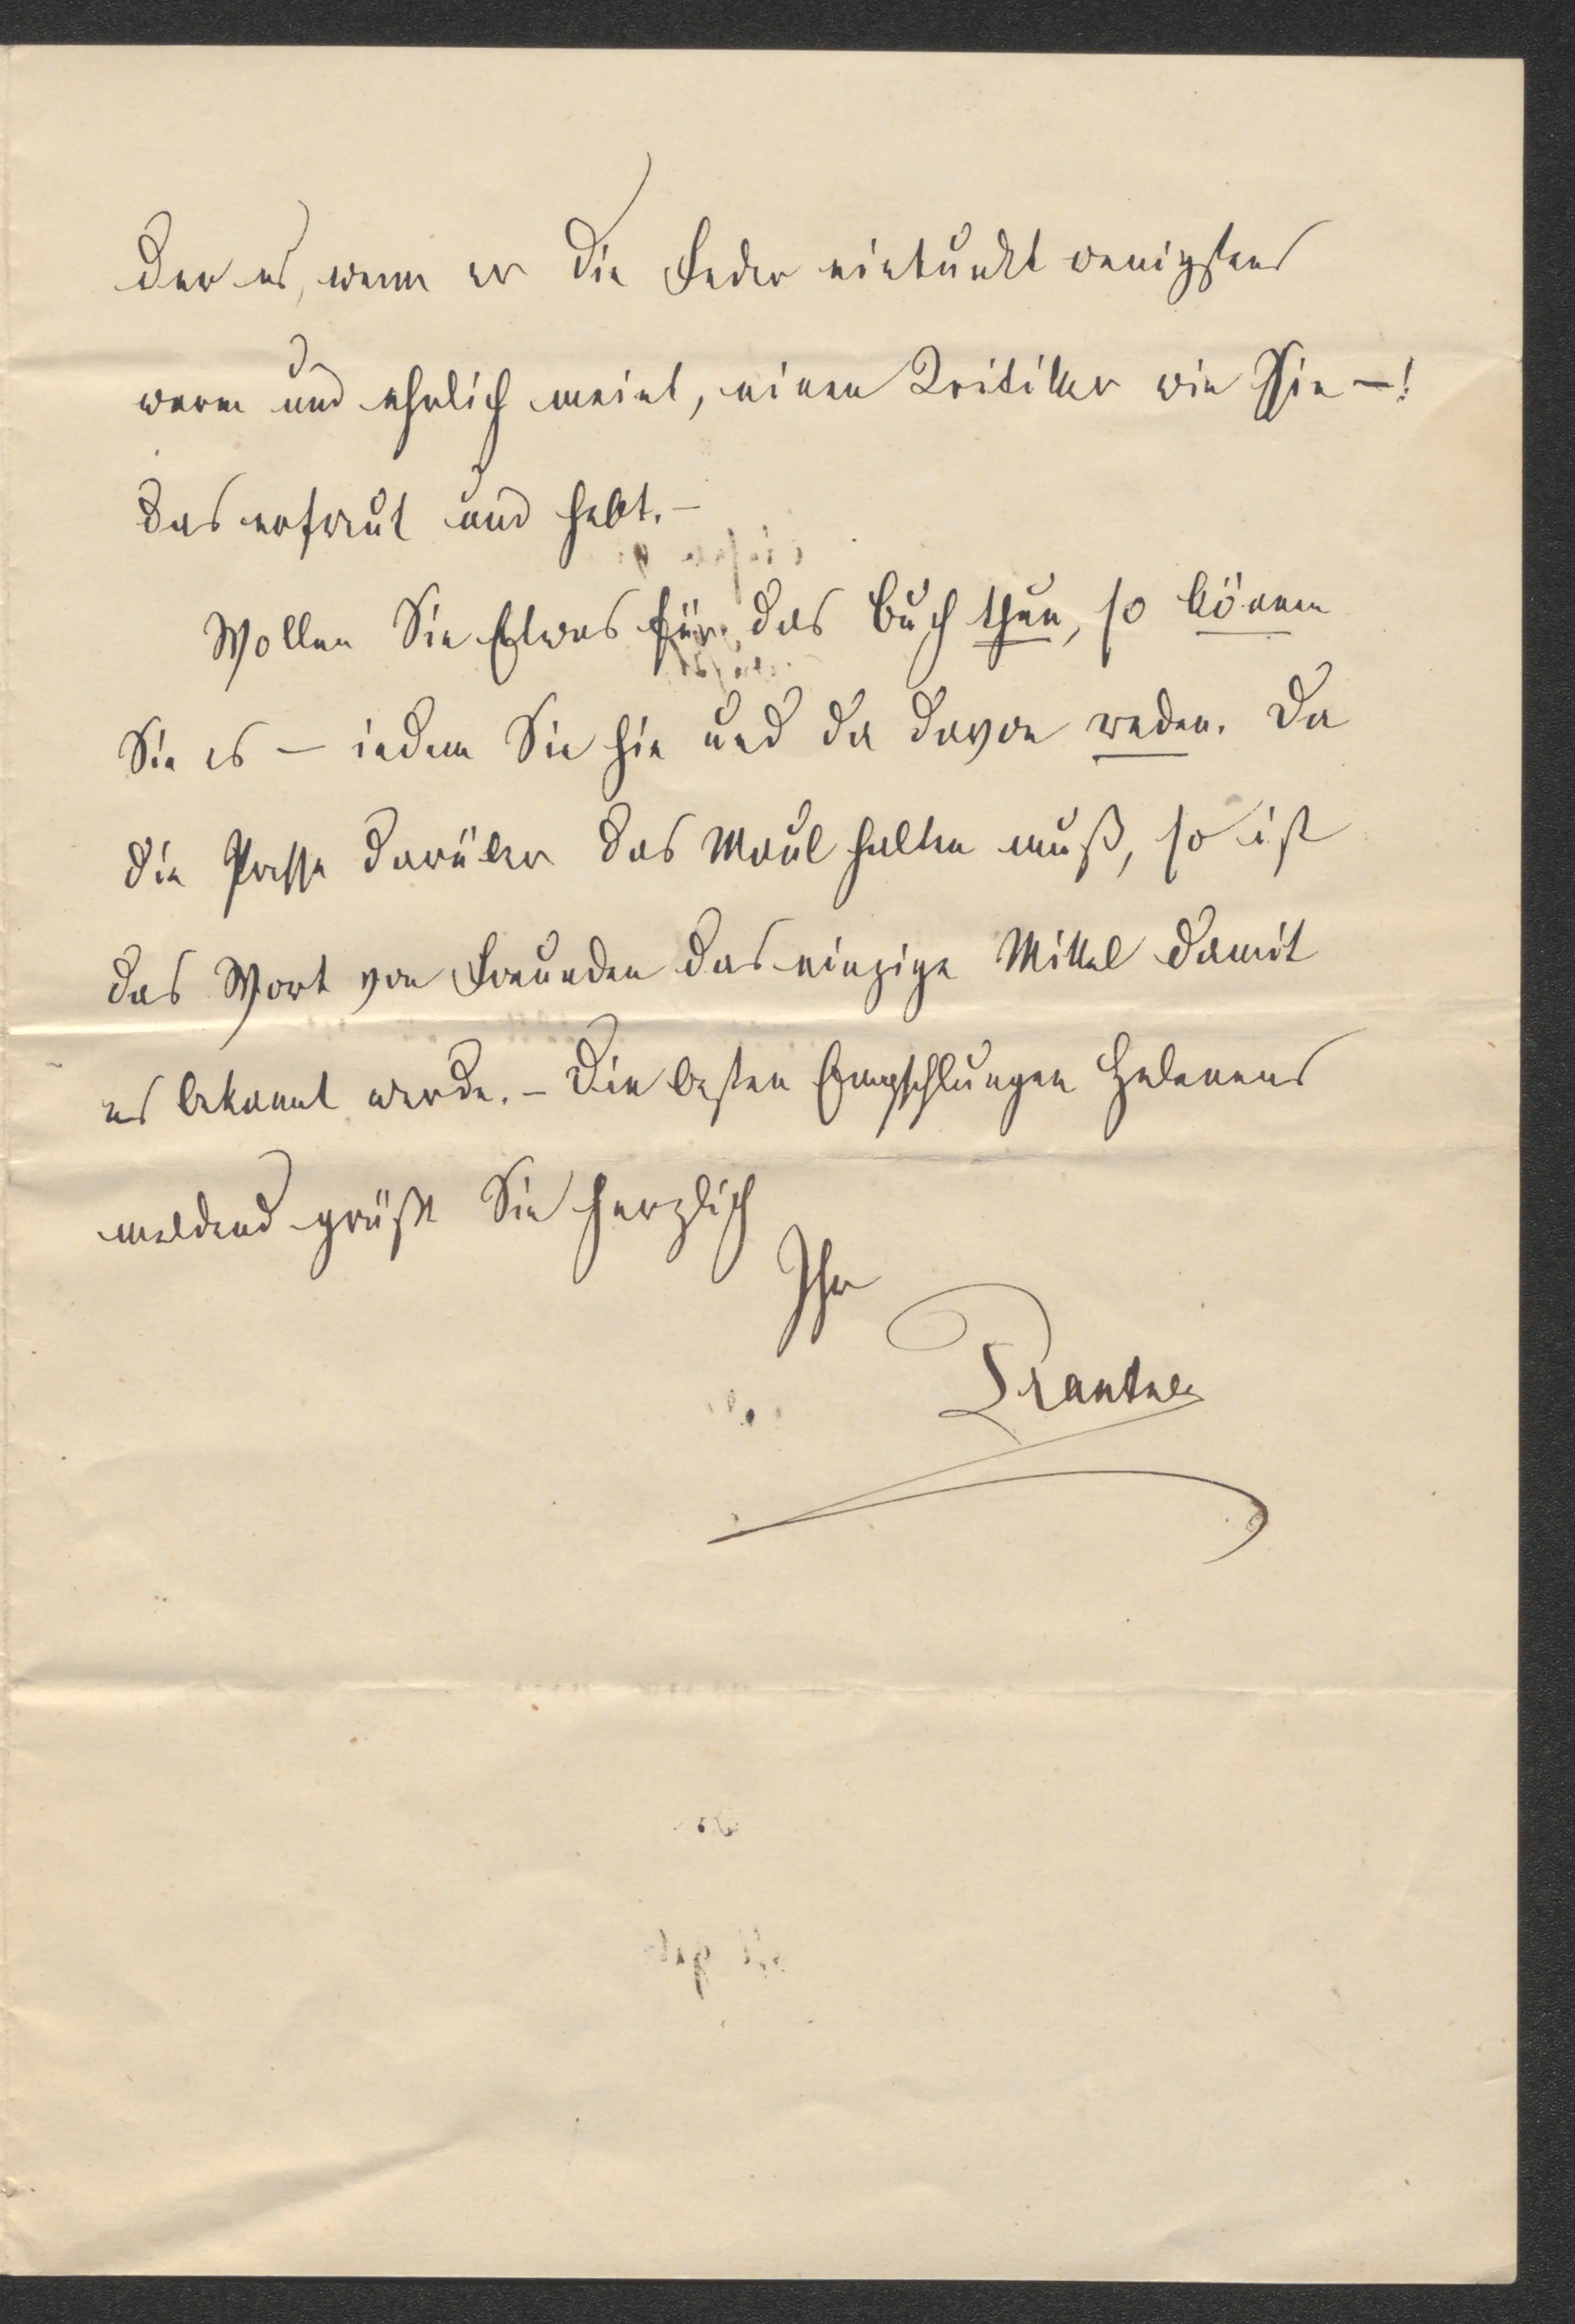 der es, wenn er die Feder eintunkt wenigstens
warm und ehrlich meint, einen Kritiker wie Sie –!
das erfreut und hebt. –
Wollen Sie Etwas für das Buch thun, so können
Sie es – indem Sie hie und da davon reden. Da
die Presse darüber das Maul halten muß, so ist
das Wort von Freunden das einzige Mittel damit
es bekannt werde. – Die besten Empfehlungen Helenens
meldend grüßt Sie herzlich
Ihr
Prantner